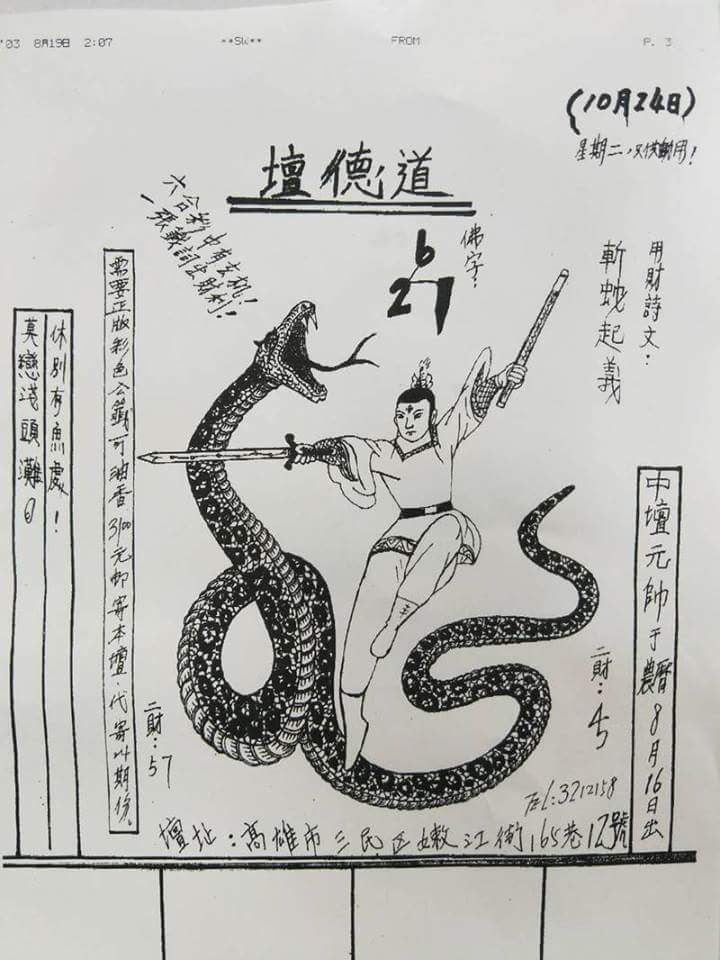 '03 8月19日 2:07 **SW** FROM P. 3
(10月24日)
星期二,只供觀用!
壇德道
六合彩中有玄机!
一張籤詩出財利!
佛字:
6
21
用財詩文:
斬蛇起義
需要正版彩色公籤可油香3100元郵寄本壇.代寄24期份。
休別有魚處!
莫戀淺頭灘。
中壇元帥于農曆8月16日出
二財:57
二財:
TEL:3212158
壇址:高雄市三民区嫩江街165巷12號